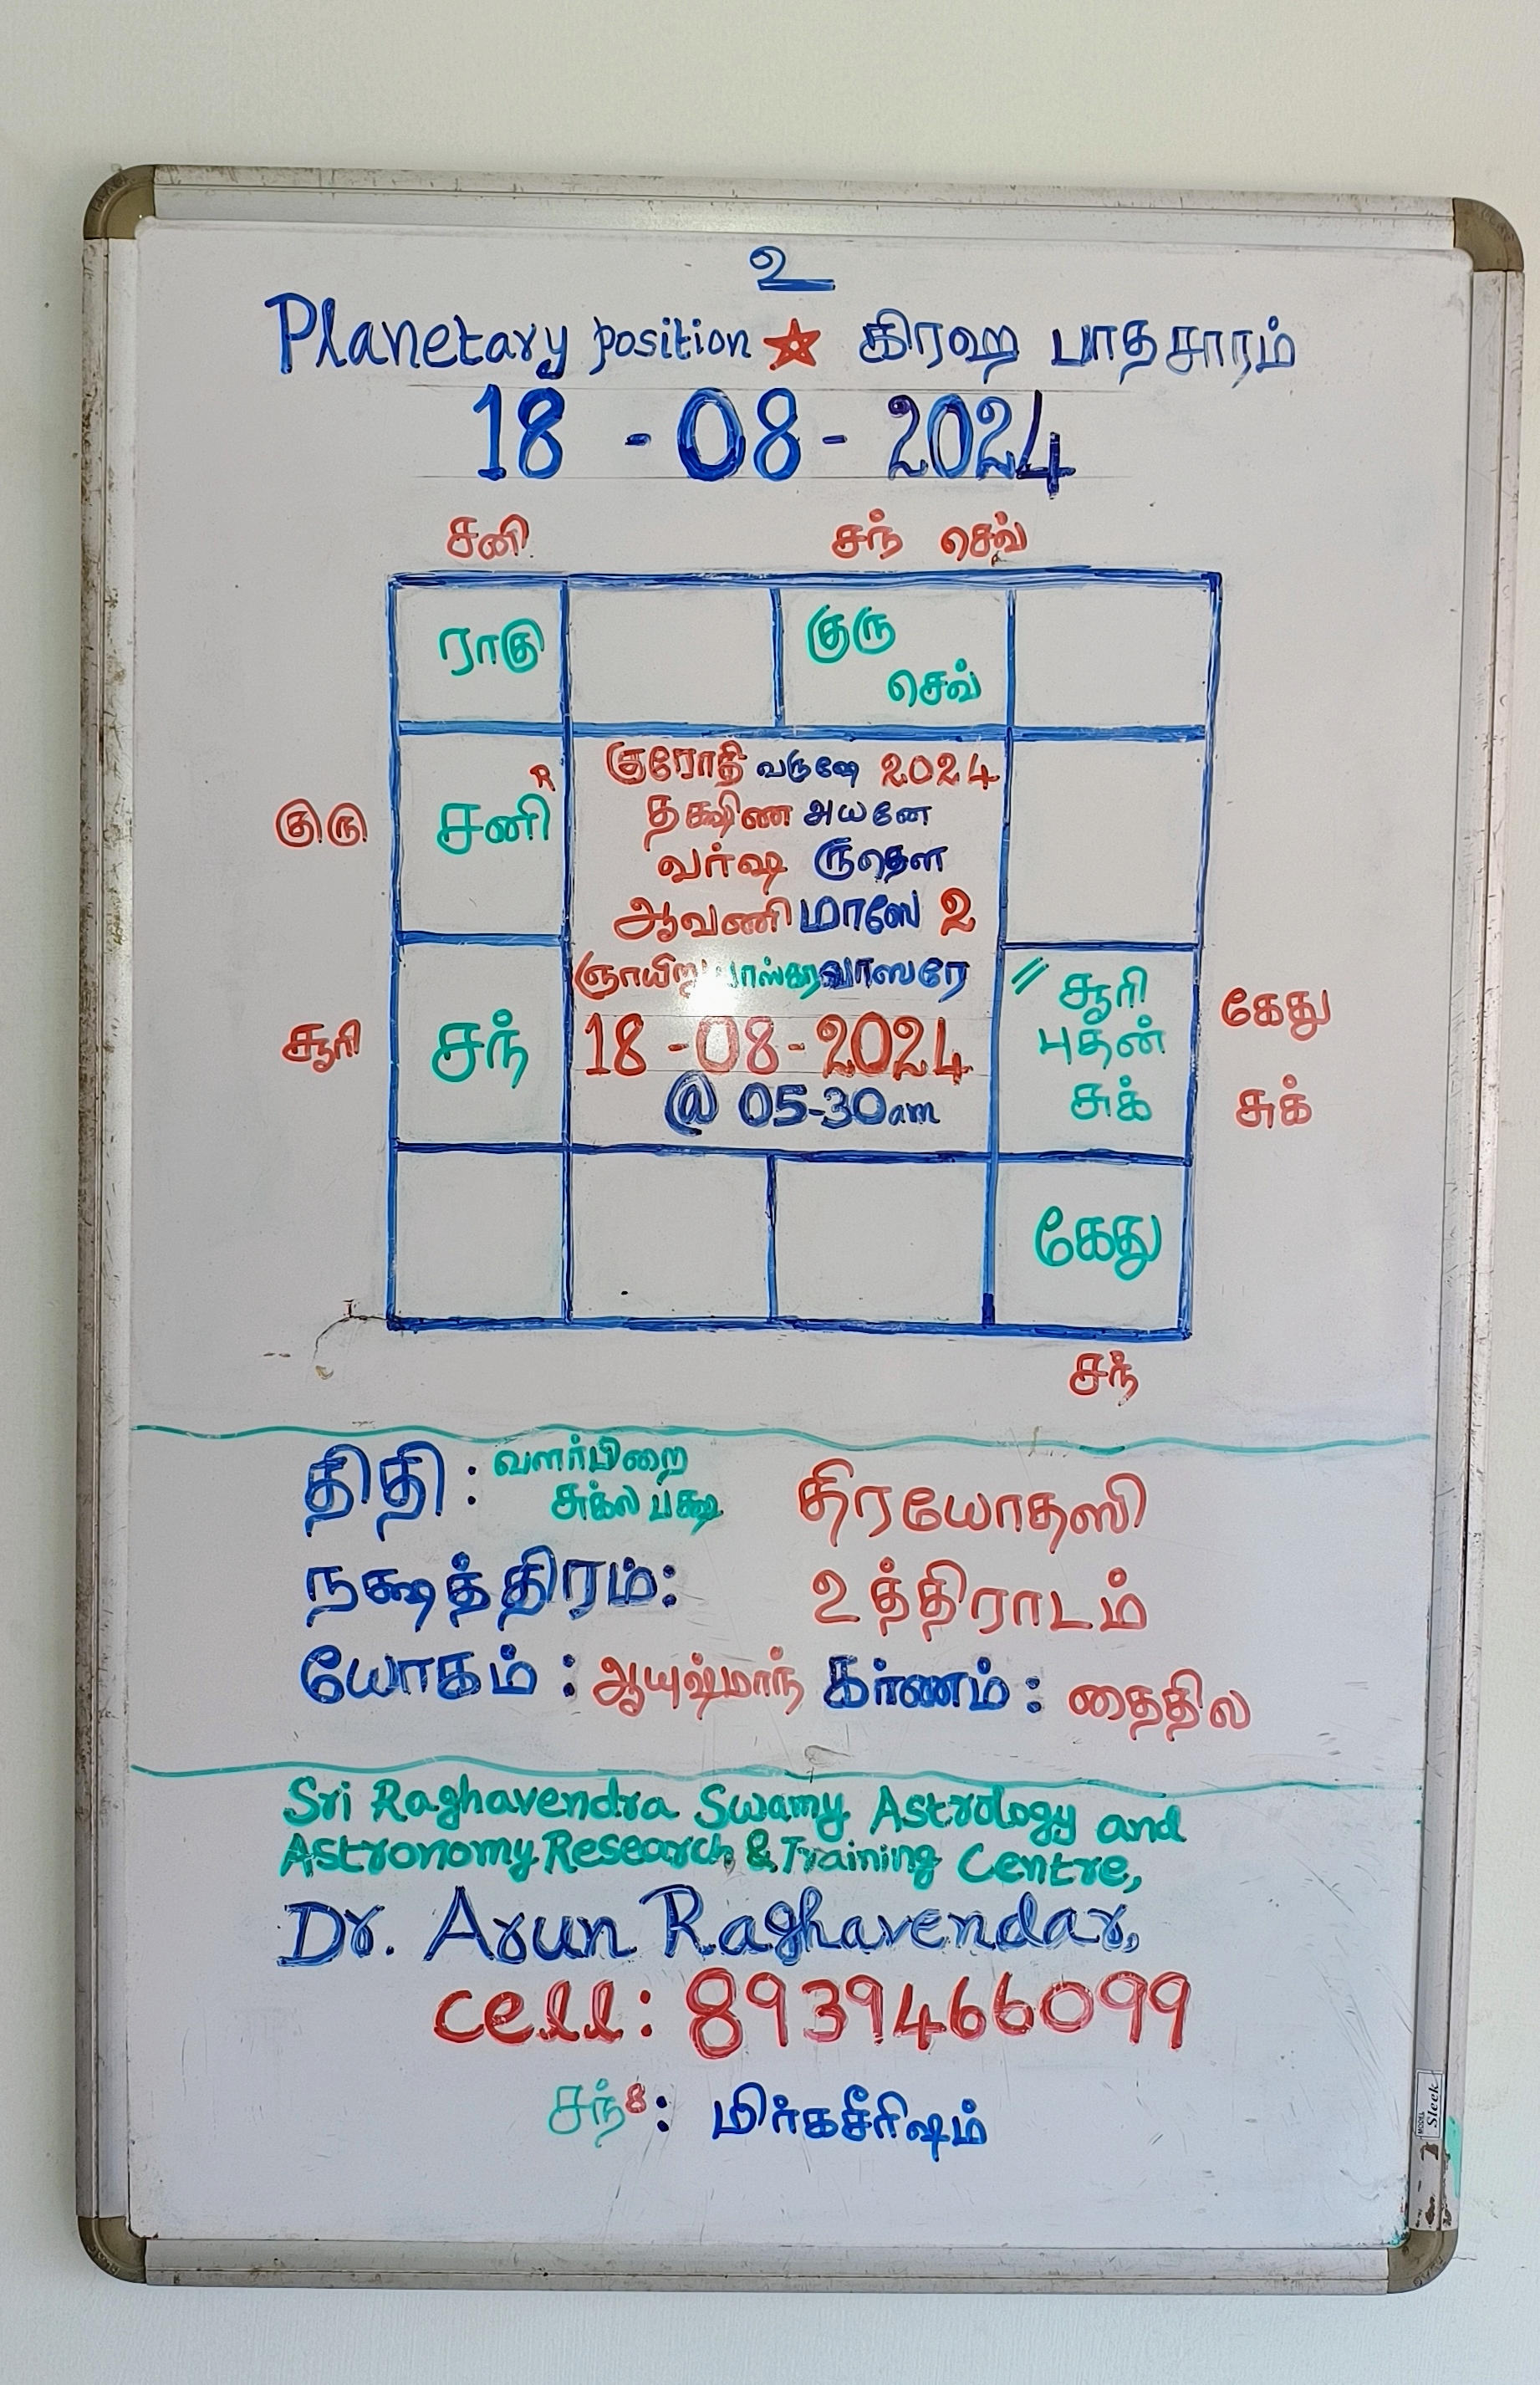 உ
Planetary position ☆ கிரஹ பாதசாரம்
18 - 08 - 2024
சனி சந் செவ்
ராகு குரு
செவ்
குரோதி வருஷே 2024
R
குரு சனி தக்ஷிண அயனே
வர்ஷ ருதௌ
ஆவணி மாஸே 2
ஞாயிறு பாஸ்கர வாஸரே
சூரி சந் 18-08-2024
@ 05-30am
// சூரி கேது
புதன்
சுக் சுக்
கேது
சந்
திதி : வளர்பிறை
சுக்ல பக்ஷ திரயோதஸி
நக்ஷத்திரம்: உத்திராடம்
யோகம் : ஆயுஷ்மாந் கர்ணம் : தைதில
Sri Raghavendra Swamy Astrology and
Astronomy Research & Training Centre,
Dr. Arun Raghavendar,
cell: 8939466099
சந்8: மிர்கசீரிஷம்
Sleek